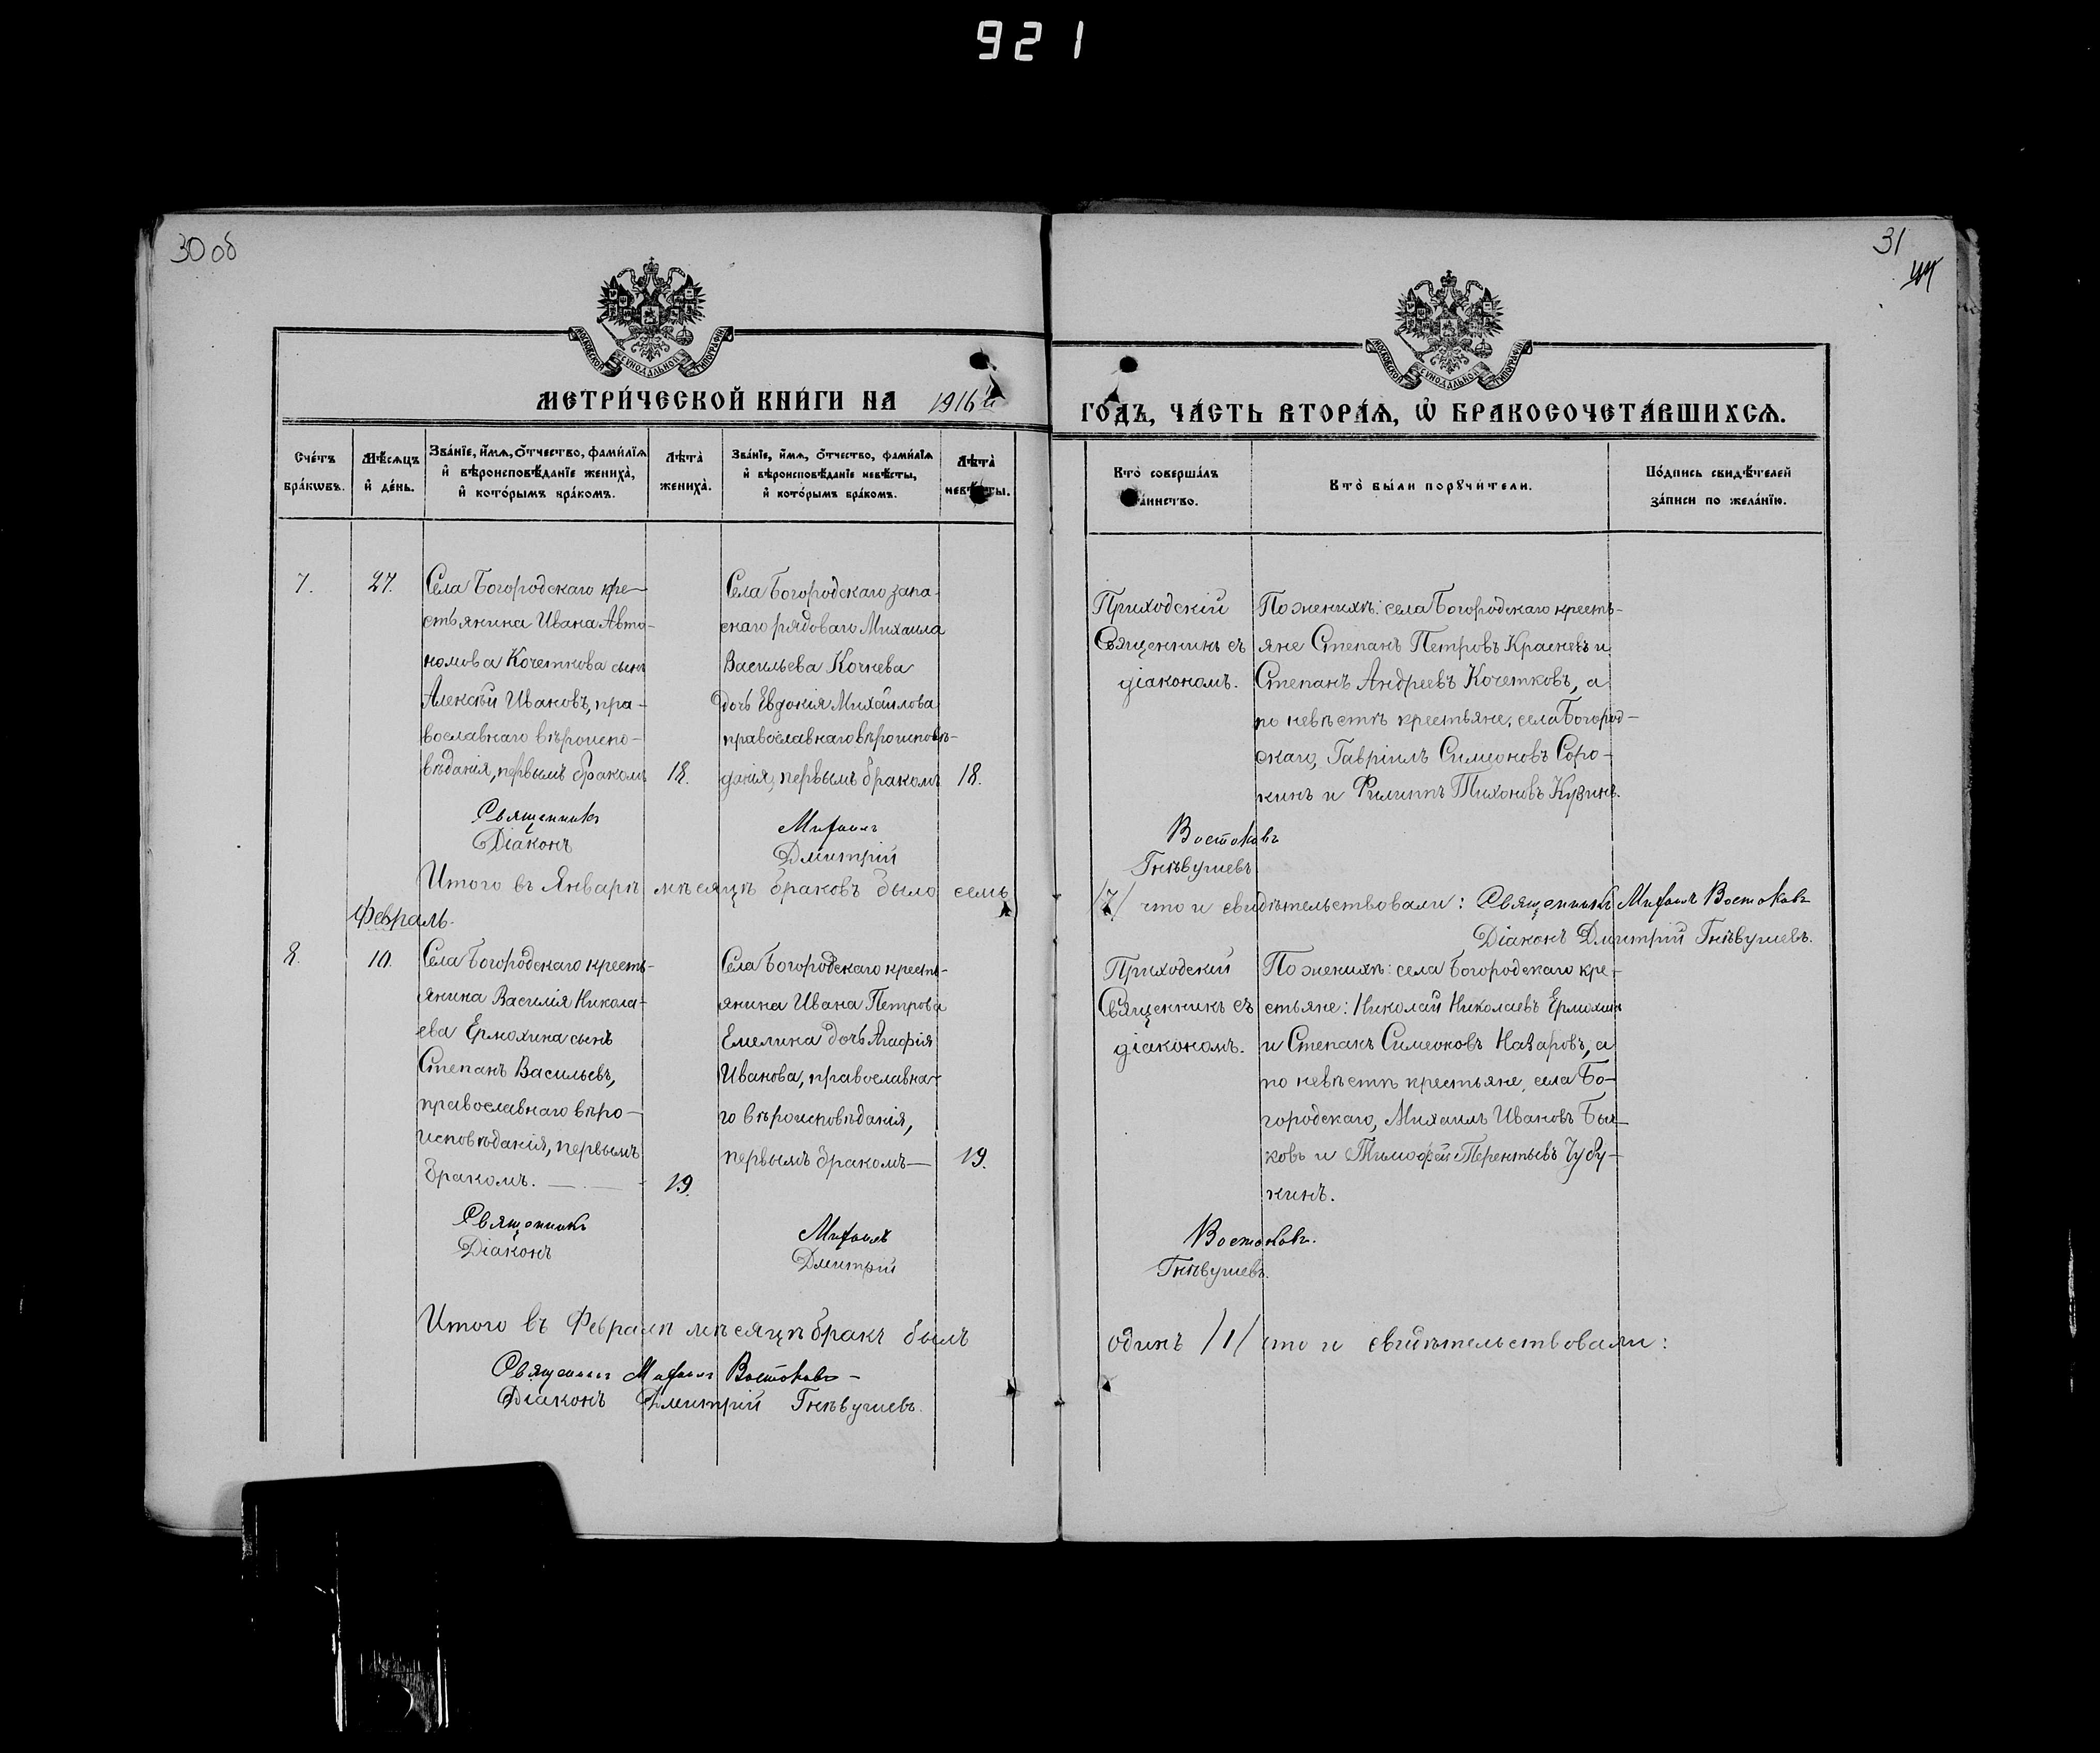 921
30 об
31
МОСКОВСКОЙ СѴНОДАЛЬНОЙ ТИПОГРАФІИ
МОСКОВСКОЙ СѴНОДАЛЬНОЙ ТИПОГРАФІИ
МЕТРИ́ЧЕСКОЙ КНИ́ГИ НА 1916й
ГОДЪ, ЧА́СТЬ ВТОРА́Ѧ, Ѡ҆ БРАКОСОЧЕТА́ВШИХСѦ.
Сче́тъ бра́кѡвъ.
Мѣ́сѧцъ и҆ де́нь.
Зва́нїе, и҆́мѧ, о҆́тчество, фами́лїѧ и҆ вѣроисповѣ́данїе жениха̀, и҆ кото́рымъ бра́комъ.
Лѣ́та̀ жениха̀.
Зва́нїе, и҆́мѧ, о҆́тчество, фами́лїѧ и҆ вѣроисповѣ́данїе невѣ́сты, и҆ кото́рымъ бра́комъ.
Лѣ́та̀
Кто̀ соверша́лъ
Кто̀ бы́ли порꙋчи́тели.
По́дпись свидѣ́телей за́писи по жела́нїю.
7.
27.
Села Богородскаго кре-
стьянина Ивана Авто-
номова Кочеткова сынъ
Алексѣй Ивановъ, пра-
вославнаго вѣроиспо-
вѣданія, первымъ бракомъ
18.
Села Богородскаго запа-
снаго рядоваго Михаила
Васильева Кочнева
дочь Евдокія Михайлова
православнаго вѣроисповѣ-
данія, первымъ бракомъ
18.
Приходскій
Священникъ съ
діакономъ.
По женихѣ: села Богородскаго кресть-
яне Степанъ Петровъ Красневъ и
Степанъ Андреевъ Кочетковъ, а
по невѣстѣ крестьяне, села Богород-
скаго, Гавріилъ Симеоновъ Соро-
кинъ и Филиппъ Тихоновъ Кузинъ.
Священникъ Михаилъ Востоковъ
Діаконъ Дмитрій Гнѣвушевъ
Итого въ Январѣ мѣсяцѣ браковъ было семь
/7/ что и свидѣтельствовали: Священникъ Михаилъ Востоковъ
Діаконъ Дмитрій Гнѣвушевъ.
Февраль.
8.
10.
Села Богородскаго кресть-
янина Василія Никола-
ева Ермохина сынъ
Степанъ Васильевъ,
православнаго вѣро-
исповѣданія, первымъ
бракомъ.
19.
Села Богородскаго кресть-
янина Ивана Петрова
Емелина дочь Агафія
Иванова, православна-
го вѣроисповѣданія,
первымъ бракомъ
19.
Приходскій
Священникъ съ
діакономъ.
По женихѣ: села Богородскаго кре-
стьяне: Николай Николаевъ Ермохинъ
и Степанъ Симеоновъ Назаровъ, а
по невѣстѣ крестьяне, села Бо-
городскаго, Михаилъ Ивановъ Бы-
ковъ и Тимофей Терентьевъ Чубу-
кинъ.
Священникъ Михаилъ Востоковъ.
Діаконъ Дмитрій Гнѣвушевъ.
Итого въ Февралѣ мѣсяцѣ бракъ былъ
одинъ /1/ что и свидѣтельствовали:
Священникъ Михаилъ Востоковъ
Діаконъ Дмитрій Гнѣвушевъ.